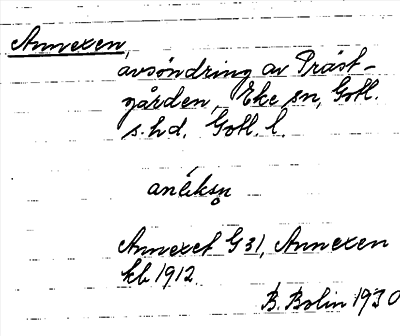 Annexen,
avsöndring av Präst-
gården, Eke sn, Gotl.
s. hd. Gotl. l.
anéksn̥
Annexet G 31, Annexen
kb 1912.
B. Bolin 1930